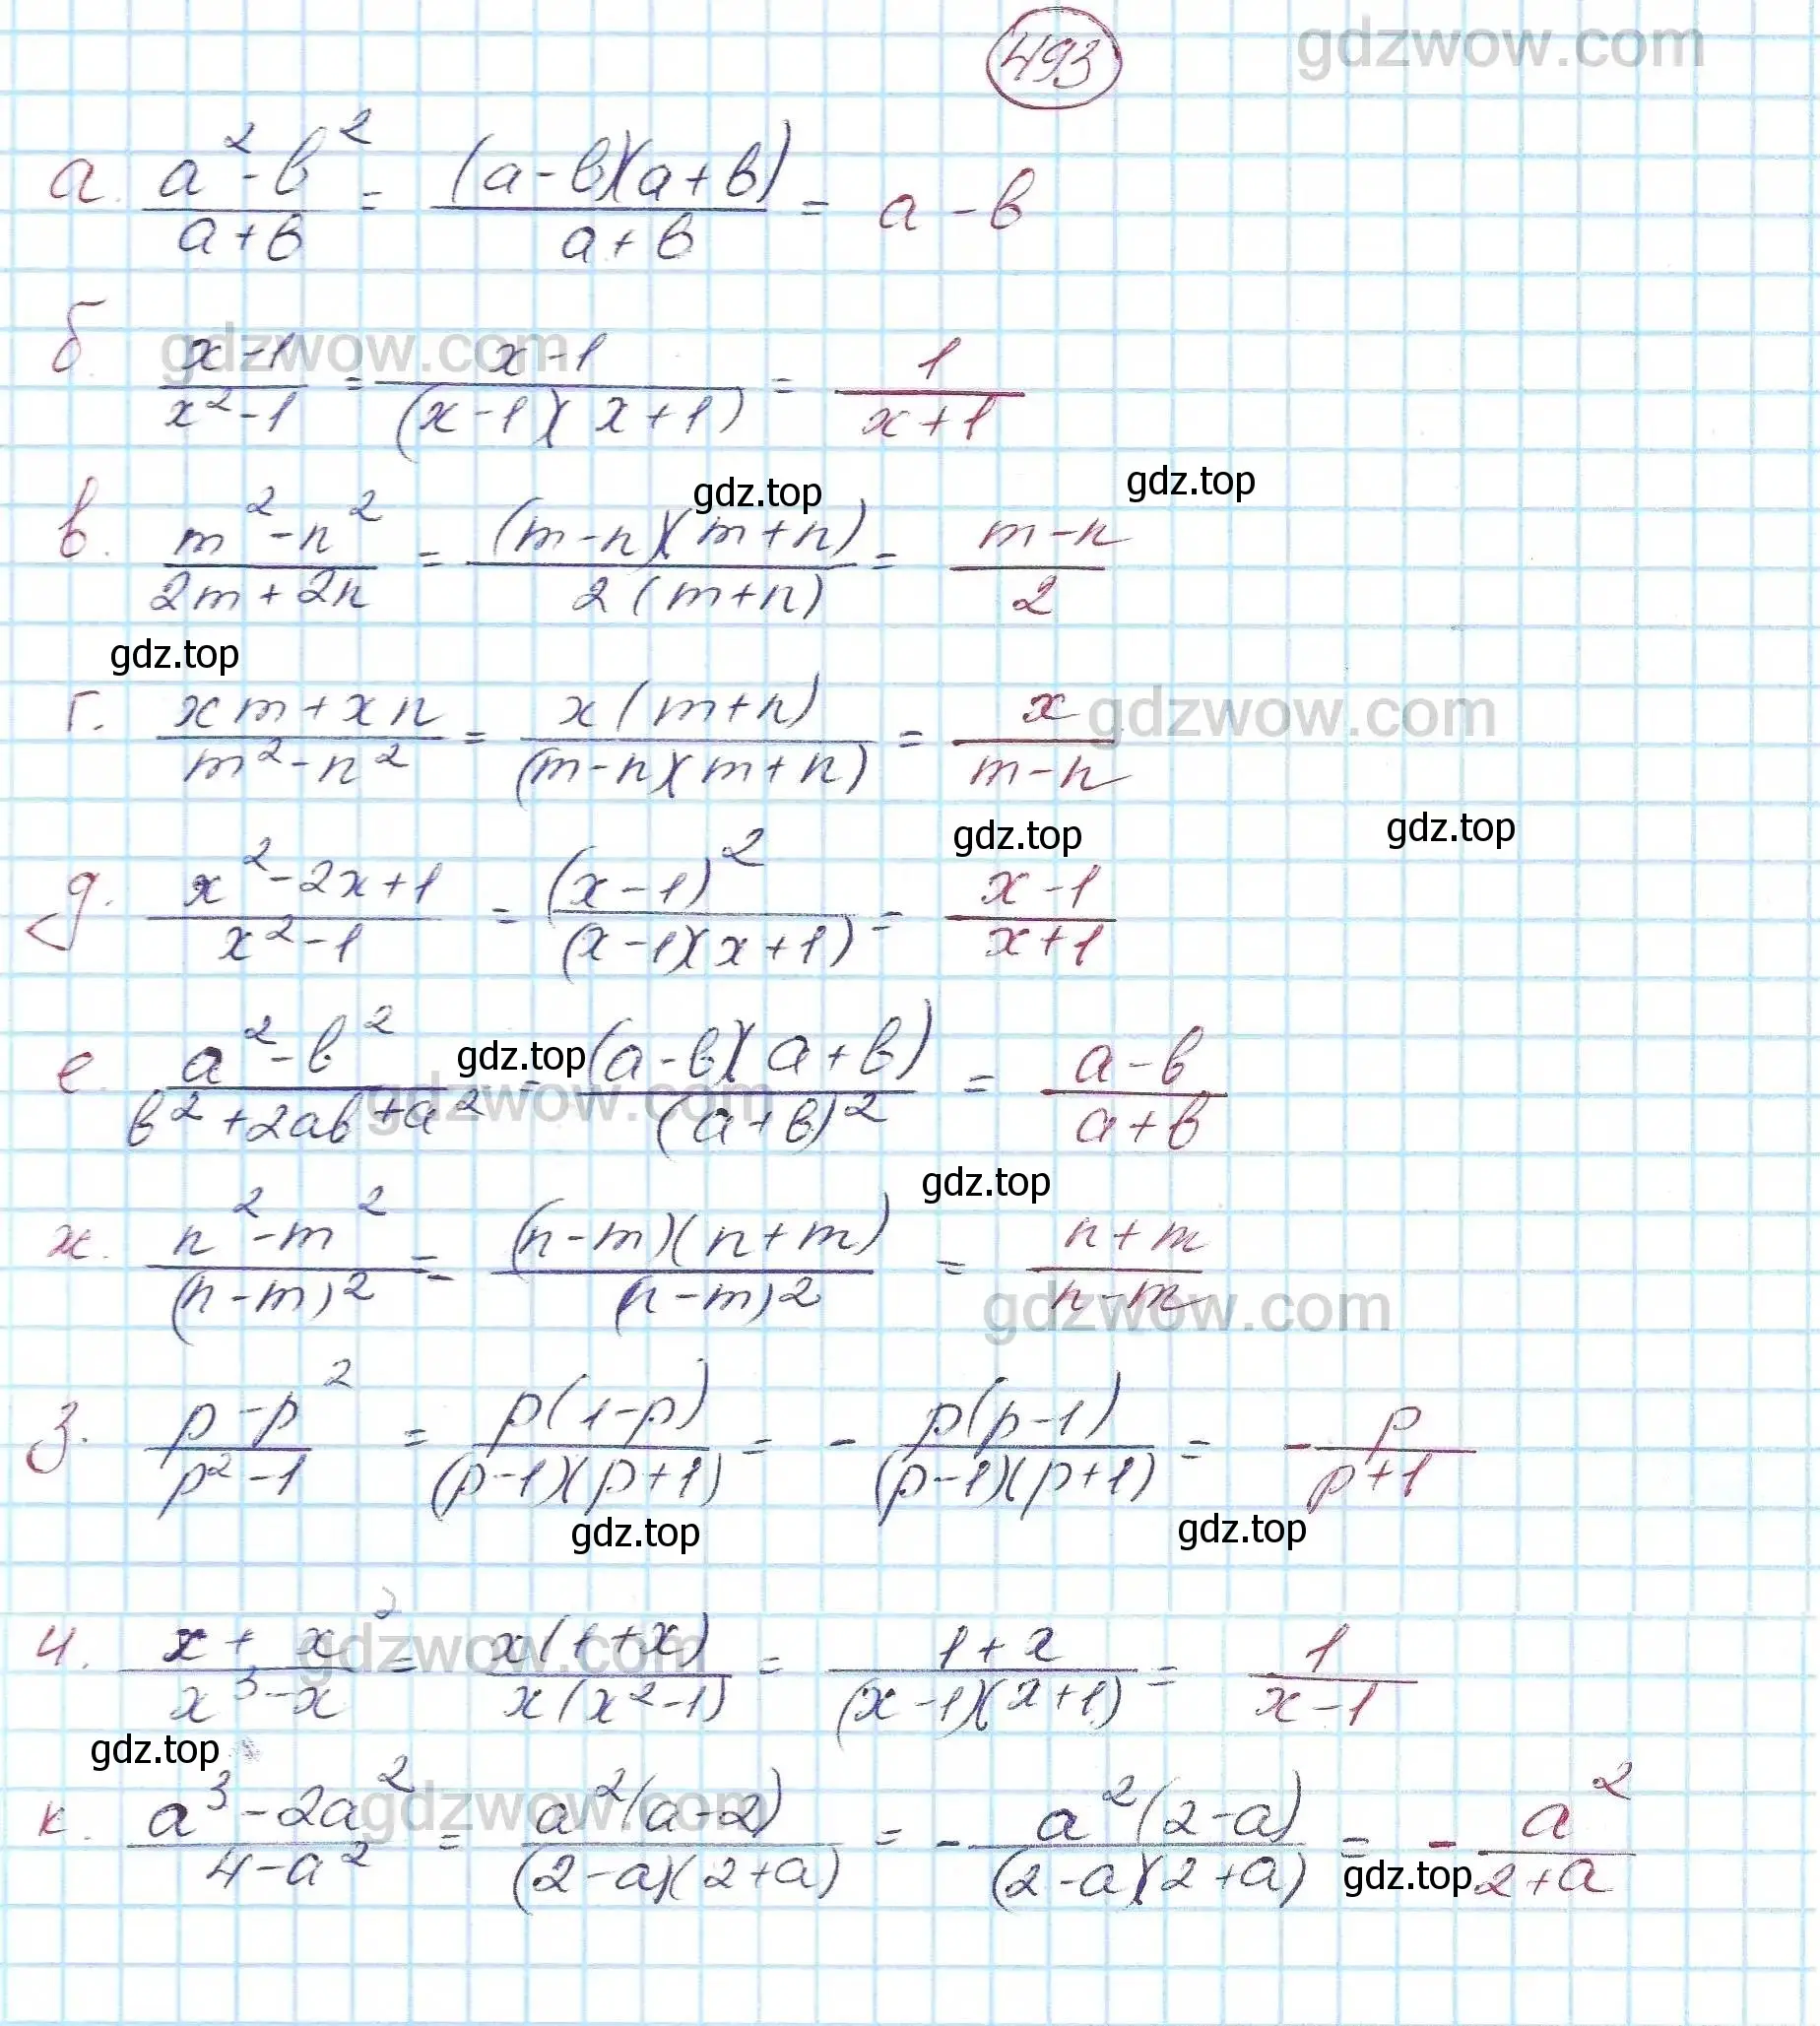 493
gdzwow.com
а. (a² - b²)/(a + b) = ((a - b)(a + b))/(a + b) = a - b
б. (x - 1)/(x² - 1) = (x - 1)/((x - 1)(x + 1)) = 1/(x + 1)
gdzwow.com
gdz.top gdz.top
в. (m² - n²)/(2m + 2n) = ((m - n)(m + n))/(2(m + n)) = (m - n)/2
gdz.top
г. (xm + xn)/(m² - n²) = (x(m + n))/((m - n)(m + n)) = x/(m - n)
gdzwow.com
gdz.top gdz.top
д. (x² - 2x + 1)/(x² - 1) = (x - 1)²/((x - 1)(x + 1)) = (x - 1)/(x + 1)
е. (a² - b²)/(b² + 2ab + a²) = ((a - b)(a + b))/(a + b)² = (a - b)/(a + b)
gdz.top
gdzwow.com
gdz.top
ж. (n² - m²)/(n - m)² = ((n - m)(n + m))/(n - m)² = (n + m)/(n - m)
gdzwow.com
з. (p - p²)/(p² - 1) = (p(1 - p))/((p - 1)(p + 1)) = - (p(p - 1))/((p - 1)(p + 1)) = - p/(p + 1)
gdz.top gdz.top
и. (x + x²)/(x³ - x) = (x(1 + x))/(x(x² - 1)) = (1 + x)/((x - 1)(x + 1)) = 1/(x - 1)
gdzwow.com
gdz.top
к. (a³ - 2a²)/(4 - a²) = (a²(a - 2))/((2 - a)(2 + a)) = - (a²(2 - a))/((2 - a)(2 + a)) = - a²/(2 + a)
gdzwow.com
gdz.top